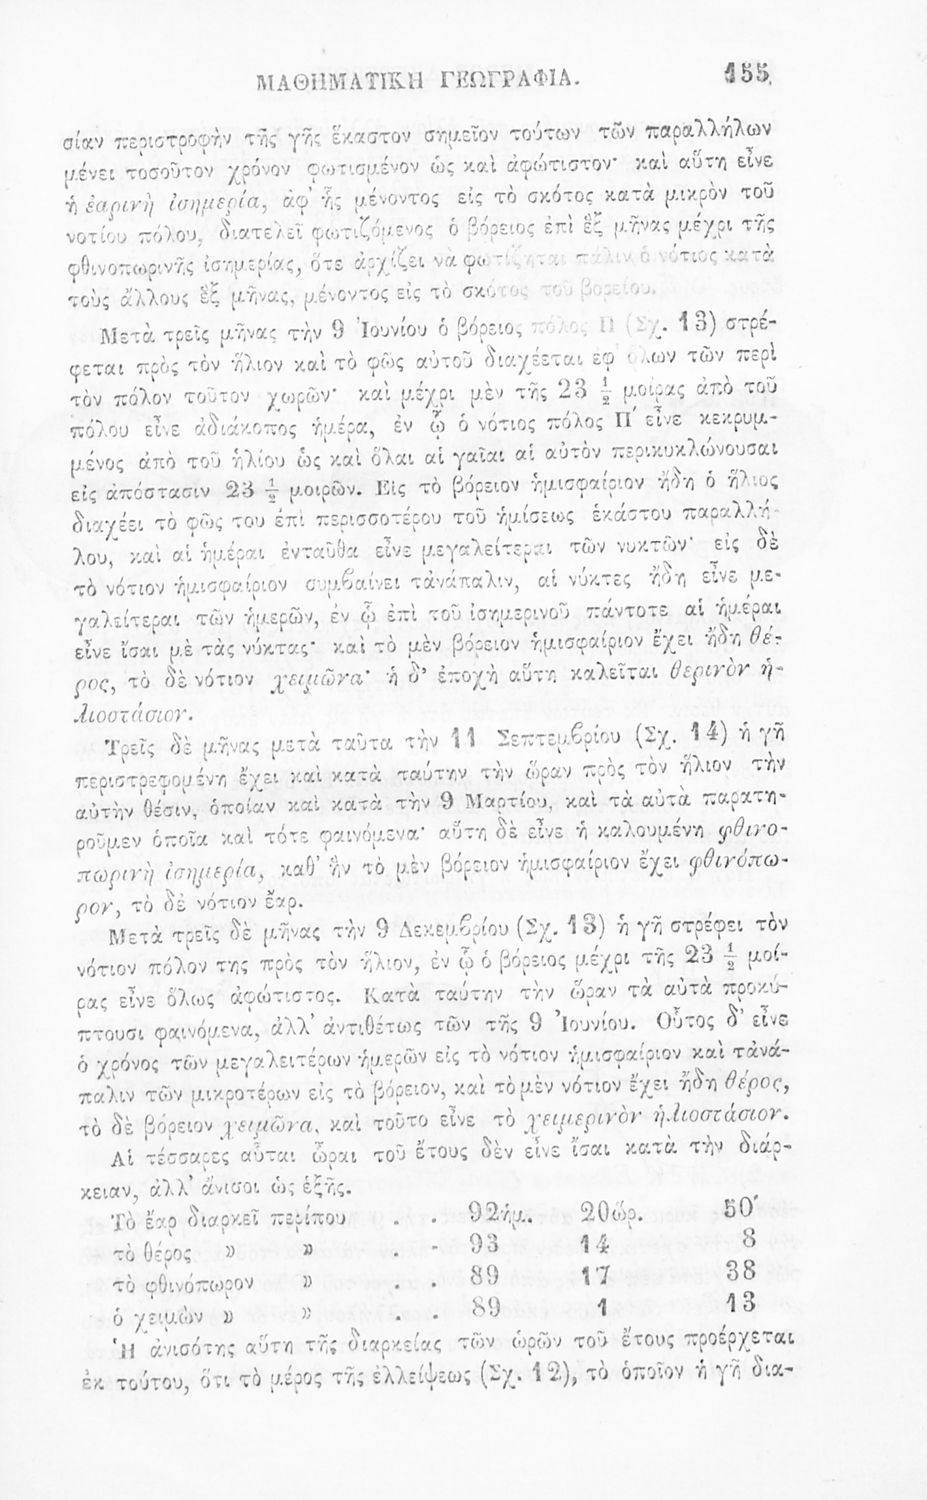 ΜΑΘΗΜΑΤΙΚΗ ΓΕΩΓΡΑΦΙΑ. 155
σίαν περιστροφὴν τῆς γῆς ἕκαστον σημεῖον τούτων τῶν παραλλήλων
μένει τοσοῦτον χρόνον φωτισμένον ὡς καὶ ἀφώτιστον· καὶ αὕτη εἶνε
ἡ ἐαρινὴ ἰσημερία, ἀφ' ἧς μένοντος εἰς τὸ σκότος κατὰ μικρὸν τοῦ
νοτίου πόλου, διατελεῖ φωτιζόμενος ὁ βόρειος ἐπὶ ἓξ μῆνας μέχρι τῆς
φθινοπωρινῆς ἰσημερίας, ὅτε ἀρχίζει νὰ φωτίζηται πάλιν ὁ νότιος κατὰ
τοὺς ἄλλους ἓξ μῆνας, μένοντος εἰς τὸ σκότος τοῦ βορείου.
Μετὰ τρεῖς μῆνας τὴν 9 Ἰουνίου ὁ βόρειος πόλος Π (Σχ. 13) στρέ-
φεται πρὸς τὸν ἥλιον καὶ τὸ φῶς αὐτοῦ διαχέεται ἐφ' ὅλων τῶν περὶ
τὸν πόλον τοῦτον χωρῶν· καὶ μέχρι μὲν τῆς 23 ½ μοίρας ἀπὸ τοῦ
πόλου εἶνε ἀδιάκοπος ἡμέρα, ἐν ᾧ ὁ νότιος πόλος Π' εἶνε κεκρυμ-
μένος ἀπὸ τοῦ ἡλίου ὡς καὶ ὅλαι αἱ γαῖαι αἱ αὐτὸν περικυκλώνουσαι
εἰς ἀπόστασιν 23 ½ μοιρῶν. Εἰς τὸ βόρειον ἡμισφαίριον ἤδη ὁ ἥλιος
διαχέει τὸ φῶς του ἐπὶ περισσοτέρου τοῦ ἡμίσεως ἑκάστου παραλλή-
λου, καὶ αἱ ἡμέραι ἐνταῦθα εἶνε μεγαλείτεραι τῶν νυκτῶν· εἰς δὲ
τὸ νότιον ἡμισφαίριον συμβαίνει τἀνάπαλιν, αἱ νύκτες ἤδη εἶνε με-
γαλείτεραι τῶν ἡμερῶν, ἐν ᾧ ἐπὶ τοῦ ἰσημερινοῦ πάντοτε αἱ ἡμέραι
εἶνε ἴσαι μὲ τὰς νύκτας· καὶ τὸ μὲν βόρειον ἡμισφαίριον ἔχει ἤδη θέ-
ρος, τὸ δὲ νότιον χειμῶνα· ἡ δ' ἐποχὴ αὕτη καλεῖται θερινὸν ἡ-
λιοστάσιον.
Τρεῖς δὲ μῆνας μετὰ ταῦτα τὴν 11 Σεπτεμβρίου (Σχ. 14) ἡ γῆ
περιστρεφομένη ἔχει καὶ κατὰ ταύτην τὴν ὥραν πρὸς τὸν ἥλιον τὴν
αὐτὴν θέσιν, ὁποίαν καὶ κατὰ τὴν 9 Μαρτίου, καὶ τὰ αὐτὰ παρατη-
ροῦμεν ὁποῖα καὶ τότε φαινόμενα· αὕτη δὲ εἶνε ἡ καλουμένη φθινο-
πωρινὴ ἰσημερία, καθ' ἣν τὸ μὲν βόρειον ἡμισφαίριον ἔχει φθινόπω-
ρον, τὸ δὲ νότιον ἔαρ.
Μετὰ τρεῖς δὲ μῆνας τὴν 9 Δεκεμβρίου (Σχ. 13) ἡ γῆ στρέφει τὸν
νότιον πόλον της πρὸς τὸν ἥλιον, ἐν ᾧ ὁ βόρειος μέχρι τῆς 23 ½ μοί-
ρας εἶνε ὅλως ἀφώτιστος. Κατὰ ταύτην τὴν ὥραν τὰ αὐτὰ προκύ-
πτουσι φαινόμενα, ἀλλ' ἀντιθέτως τῶν τῆς 9 Ἰουνίου. Οὗτος δ' εἶνε
ὁ χρόνος τῶν μεγαλειτέρων ἡμερῶν εἰς τὸ νότιον ἡμισφαίριον καὶ τἀνά-
παλιν τῶν μικροτέρων εἰς τὸ βόρειον, καὶ τὸ μὲν νότιον ἔχει ἤδη θέρος,
τὸ δὲ βόρειον χειμῶνα, καὶ τοῦτο εἶνε τὸ χειμερινὸν ἡλιοστάσιον.
Αἱ τέσσαρες αὗται ὧραι τοῦ ἔτους δὲν εἶνε ἴσαι κατὰ τὴν διάρ-
κειαν, ἀλλ' ἄνισοι ὡς ἑξῆς.
Τὸ ἔαρ διαρκεῖ περίπου . . 92ἡμ. 20ὡρ. 50'
τὸ θέρος » » . . 93 14 8
τὸ φθινόπωρον » . . 89 17 38
ὁ χειμὼν » » . . 89 1 13
Ἡ ἀνισότης αὕτη τῆς διαρκείας τῶν ὡρῶν τοῦ ἔτους προέρχεται
ἐκ τούτου, ὅτι τὸ μέρος τῆς ἐλλείψεως (Σχ. 12), τὸ ὁποῖον ἡ γῆ δια-